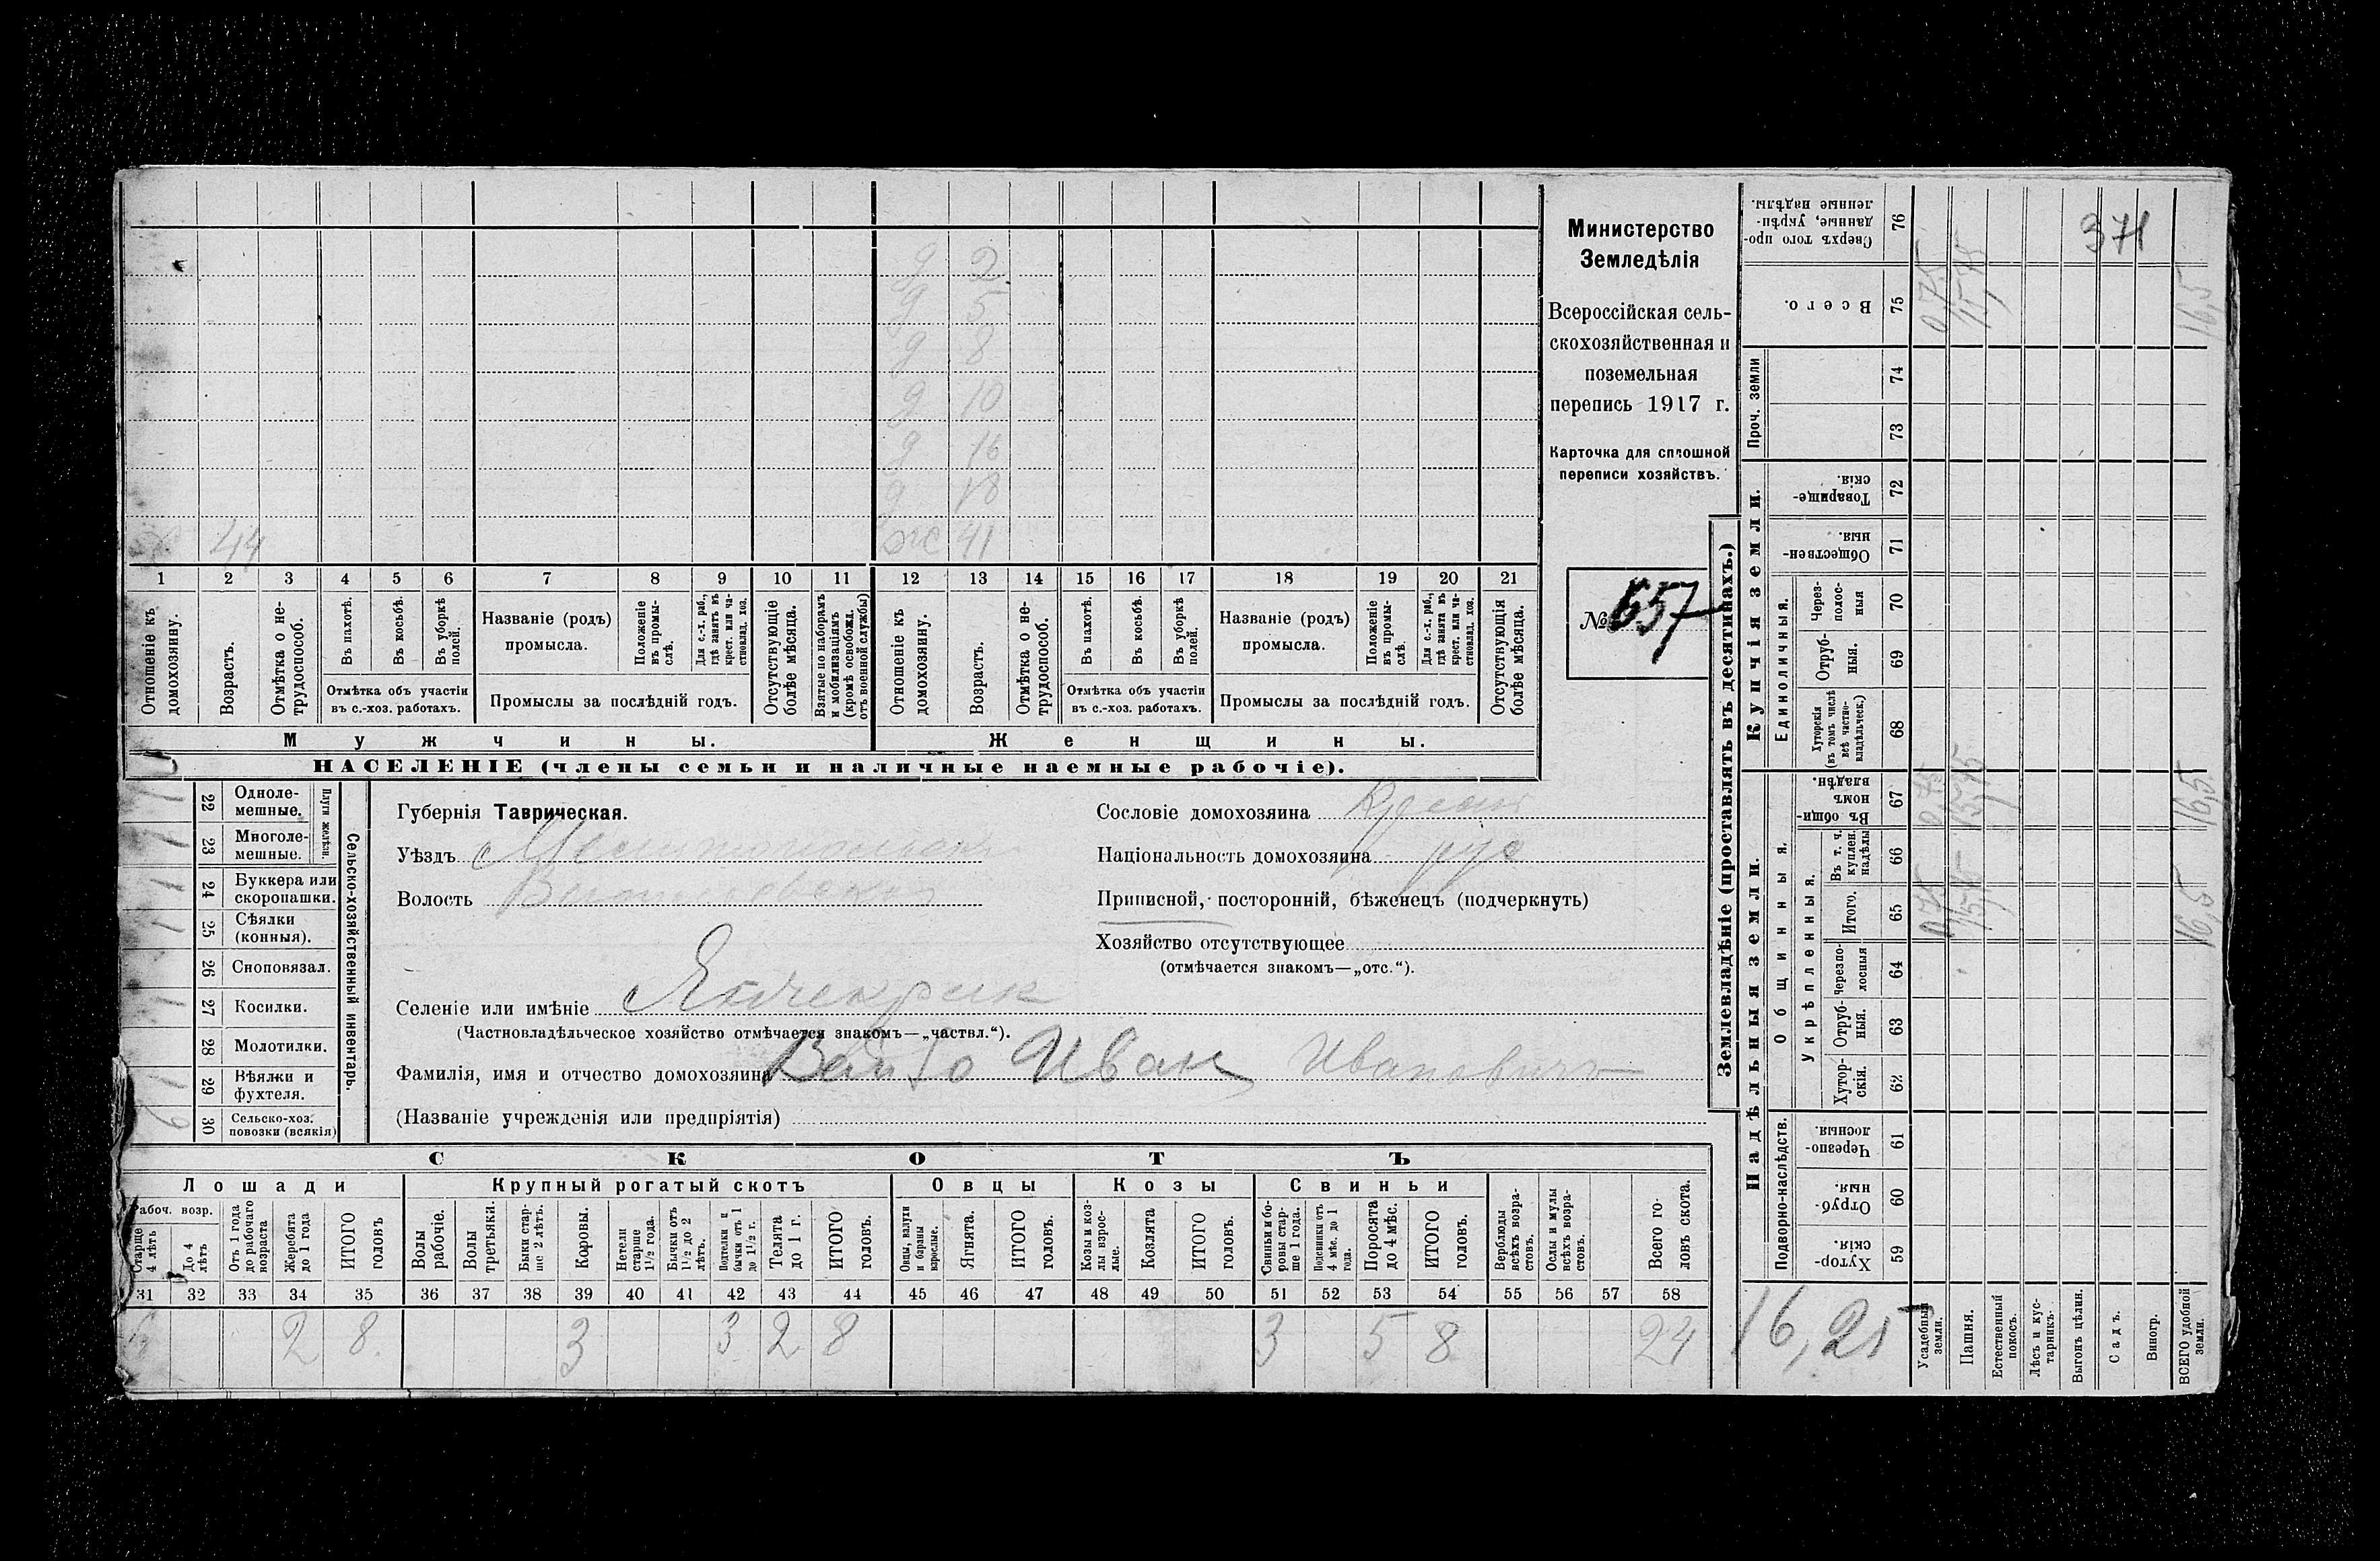 Министерство
Земледѣлія
Всероссійская сель-
скохозяйственная и
поземельная
перепись 1917 г.
Карточка для сплошной
переписи хозяйствъ.
№ 657
371
д 2
д 5
д 8
д 10
д 16
д 18
44 41
1 2 3 4 5 6 7 8 9 10 11 12 13 14 15 16 17 18 19 20 21
Отношеніе къ домохозяину.
Возрастъ.
Отмѣтка о не-трудоспособ.
Въ пахотѣ.
Въ косьбѣ.
Въ уборкѣ полей.
Отмѣтка объ участіи
въ с.-хоз. работахъ.
Названіе (родъ)
промысла.
Положеніе въ промы-слѣ.
Для с.-х. раб., гдѣ занятъ въ крест. или ча-стновлад. хоз.
Промыслы за послѣдній годъ.
Отсутствующіе болѣе мѣсяца.
Взятые по наборамъ и мобилизаціямъ (кромѣ освобожд. отъ военной службы)
Отношеніе къ домохозяину.
Возрастъ.
Отмѣтка о не-трудоспособ.
Въ пахотѣ.
Въ косьбѣ.
Въ уборкѣ полей.
Отмѣтка объ участіи
въ с.-хоз. работахъ.
Названіе (родъ)
промысла.
Положеніе въ промы-слѣ.
Для с.-х. раб., гдѣ занята въ крест. или ча-стновлад. хоз.
Промыслы за послѣдній годъ.
Отсутствующія болѣе мѣсяца.
Мужчины.
Женщины.
НАСЕЛЕНІЕ (члены семьи и наличные наемные рабочіе).
Сельско-хозяйственный инвентарь.
Плуги желѣзн.
22 Одноле-мешные.
23 Многоле-мешные.
24 Буккера или скоропашки.
25 Сѣялки (конныя).
26 Сноповязал.
27 Косилки.
28 Молотилки.
29 Вѣялки и фухтеля.
30 Сельско-хоз. повозки (всякія)
Губернія Таврическая.
Уѣздъ
Волость
Селеніе или имѣніе
(Частновладѣльческое хозяйство отмѣчается знакомъ—„частвл.“).
Фамилія, имя и отчество домохозяина Иван Ивановичъ
(Названіе учрежденія или предпріятія)
Сословіе домохозяина
Національность домохозяина рус
Приписной, посторонній, бѣженецъ (подчеркнуть)
Хозяйство отсутствующее
(отмѣчается знакомъ—„отс.“).
СКОТЪ
Лошади
Крупный рогатый скотъ
Овцы
Козы
Свиньи
Рабоч. возр.
Старше 4 лѣтъ
До 4 лѣтъ
Отъ 1 года до рабочаго возраста
Жеребята до 1 года
ИТОГО головъ
Волы рабочіе.
Волы третьяки.
Быки стар-ше 2 лѣтъ.
Коровы.
Нетели старше 1½ года.
Бычки отъ 1½ до 2 лѣтъ.
Подтелки и бычки отъ 1 до 1½ г.
Телята до 1 г.
ИТОГО головъ.
Овцы, валухи и бараны взрослые.
Ягнята.
ИТОГО головъ.
Козы и коз-лы взрос-лые.
Козлята
ИТОГО головъ.
Свиньи и бо-ровы стар-ше 1 года.
Подсвинки отъ 4 мѣс. до 1 года.
Поросята до 4 мѣс.
ИТОГО головъ.
Верблюды всѣхъ возра-стовъ.
Ослы и мулы всѣхъ возра-стовъ.
Всего го-ловъ скота.
31 32 33 34 35 36 37 38 39 40 41 42 43 44 45 46 47 48 49 50 51 52 53 54 55 56 57 58
2 8 3 3 2 8 3 5 8 24
Землевладѣніе (проставлять въ десятинахъ.)
Купчія земли.
Надѣльныя земли.
Сверхъ того про-данные, укрѣп-ленные надѣлы. 76
Всего. 75
Проч. земли 74 73
Товарище-скія. 72
Обществен-ныя. 71
Единоличныя.
Через-полос-ныя 70
Отруб-ныя. 69
Хуторскія (въ томъ числѣ всѣ частно-владѣльческ.) 68
Общинныя.
Въ общи-номъ владѣн. 67
Укрѣпленныя.
Въ т. ч. куплен. надѣлы 66
Итого. 65
Черезпо-лосныя 64
Отруб-ныя. 63
Хутор-скія. 62
Подворно-наслѣдств.
Черезпо-лосныя. 61
Отруб-ныя. 60
Хутор-скія. 59
16,25
Усадебныя земли.
Пашня.
Естественный покосъ.
Лѣсъ и кус-тарникъ.
Выгонъ цѣлин.
Садъ.
Виногр.
ВСЕГО удобной земли.
0,75 15,75 16,5
0,75 15,75 16,5
0,75 15,75 16,5